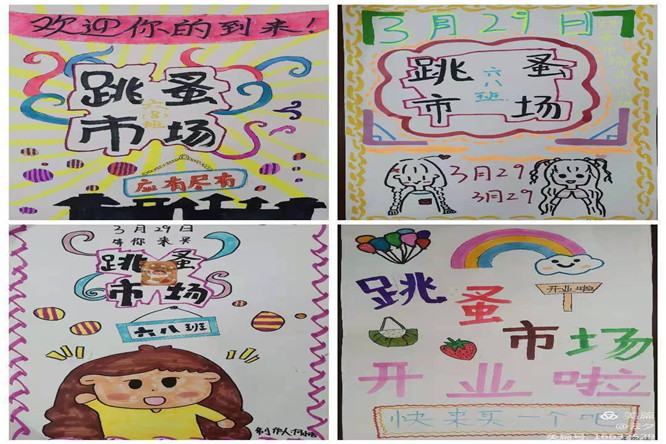 欢迎你的到来！
跳蚤
六8班
市场
应有尽有
3月29日
跳蚤
六八班
市场
3月29
3月29
3月29日
等你来买
跳蚤
市场
六八班
制作人
跳蚤市场
开业啦
开业啦
快来买一个吧
美篇